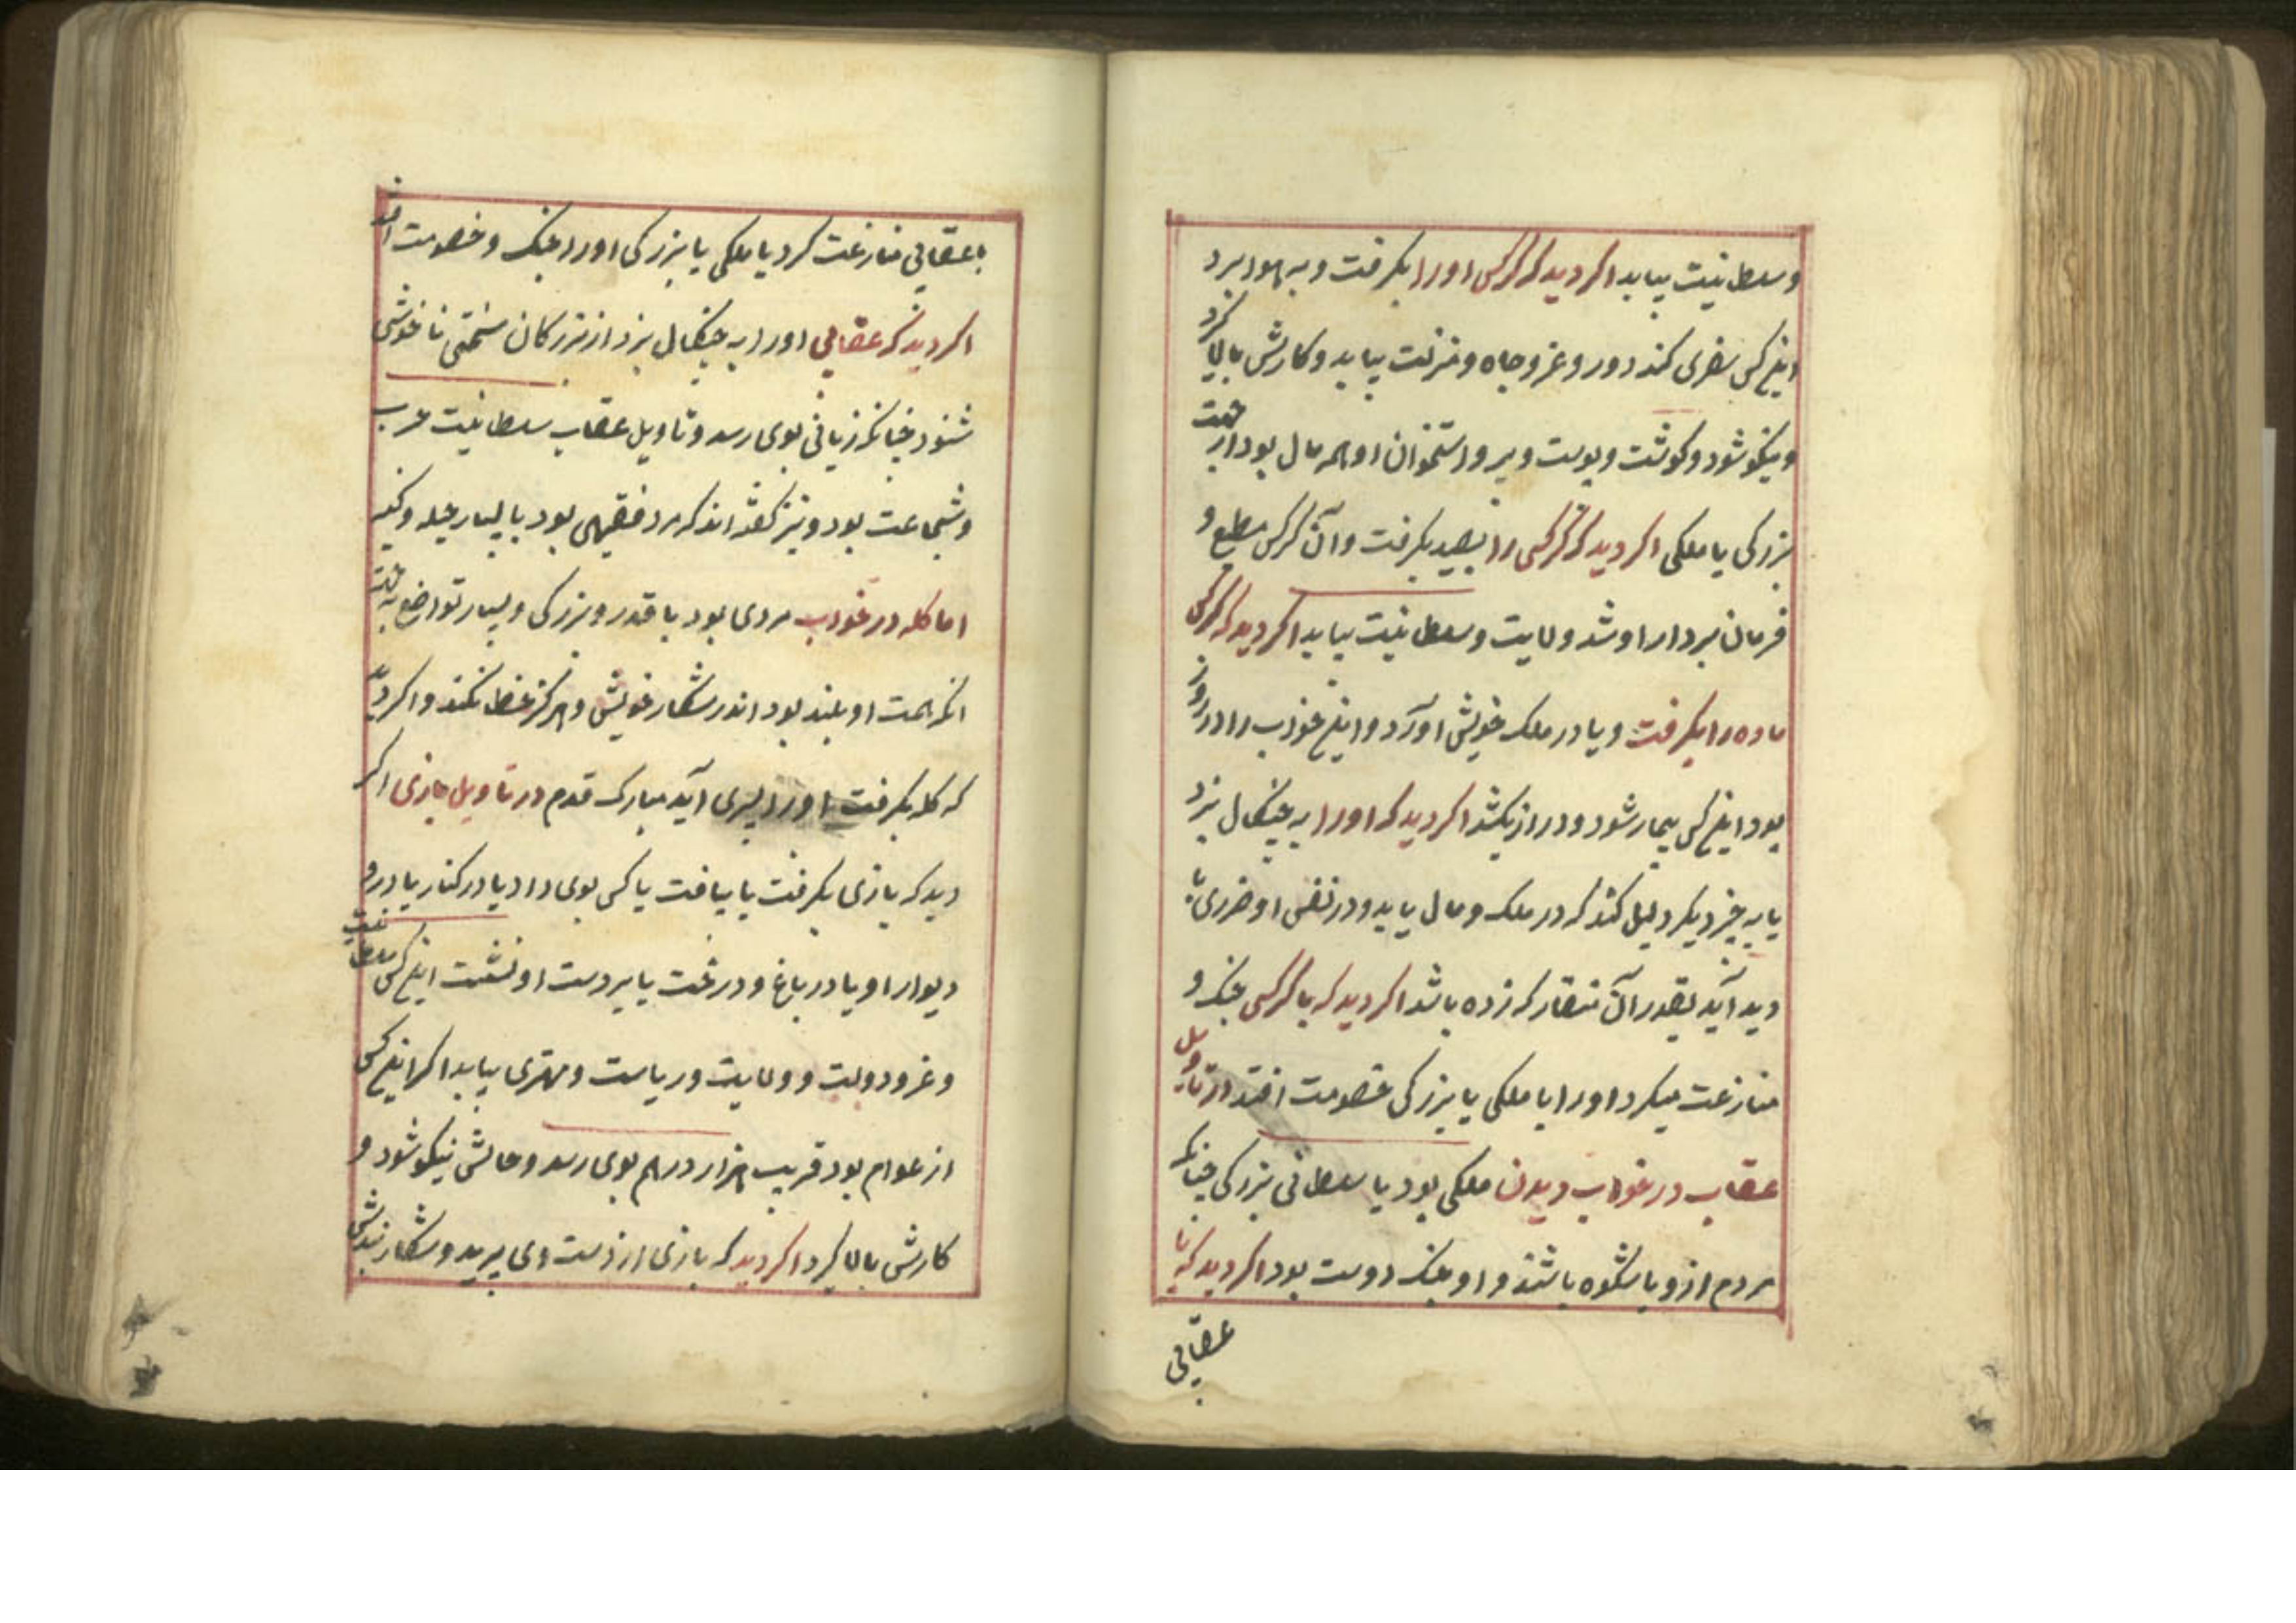 وسلطانیت بیابد اکر دید که کرکسی اورا بکرفت و به هوا برد
اینکس سفری کند دور و عز و جاه و منزلت بیابد و کارش بالا کرد
و نیکو شود و کوشت و پوست و پر و استخوان او همه مال بود از جهت
بزرکی یا ملکی اکر دید که کرکسی را بصید بکرفت و آن کرکس مطیع و
فرمان بردار او شد ولایت و سلطانیت بیابد اکر دید که کرکس
ماده را بکرفت و یا در ملک خویش آورد و اینخواب را در روز
بود اینکس بیمار شود و دراز بکشد اکر دید که اورا به چنکال بزد
یا به چیز دیکر دلیل کند که در ملک و مال یابد و در نفس او ضرری
دید آید بقدر آن منقار که زده باشد اکر دید که با کرکسی جنک و
منازعت میکرد اورا با ملکی یا بزرکی خصومت افتد در تاویل
عقاب در خواب دیدن ملکی بود یا سلطانی بزرکی چنانکه
مردم ازو باشکوه باشند و او جنک دوست بود اکر دید که با
عقابی
با عقابی منازعت کرد با ملکی یا بزرکی اورا جنک و خصومت افتد
اکر دید که عقابی اورا به چنکال بزد از بزرکان سختی ناخوشی
شنود چنانکه زیانی بوی رسد و تاویل عقاب سلطانیت حرب
و شجاعت بود و نیز کفته اند که مرد فقیهی بود با بسیار حیله و کینه
اما کله در خواب مردی بود با قدر و بزرکی و بسیار تواضع
انکه همت او بلند بود اندر شکار خویش و هرکز خطا نکند و اکر دید
که کله بکرفت اورا پسری آید مبارک قدم در تاویل بازی اکر
دید که بازی بکرفت یا بیافت یا کسی بوی داد یا در کنار یا در و
دیوار او یا در باغ و درخت یا بر دست او نشست اینکس سلطانیت
و عز و دولت و ولایت و ریاست و مهتری بیابد اکر اینکس
از عوام بود قریب هزار درهم بوی رسد و حالش نیکو شود و
کارش بالا کیرد اکر دید که بازی از دست وی پرید و شکار